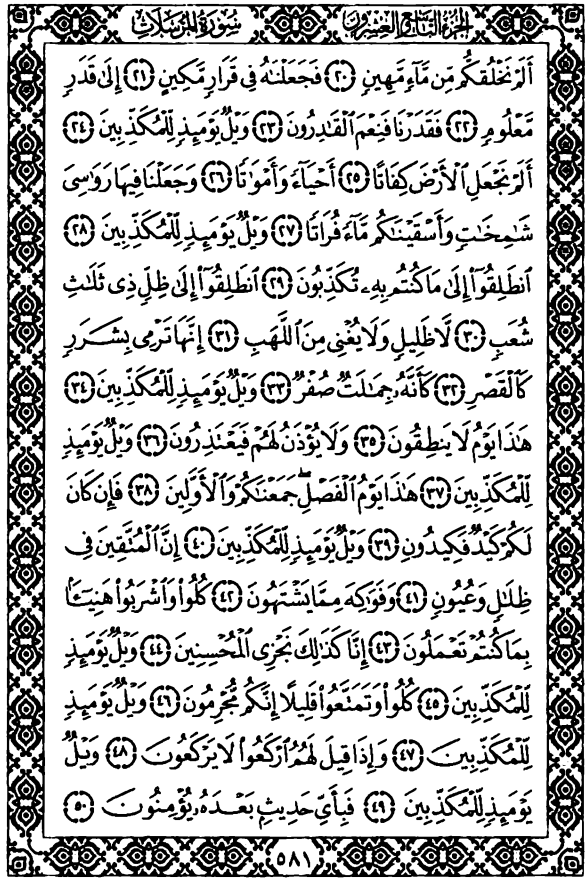 الجزء التاسع والعشرون سورة المرسلات
أَلَمْ نَخْلُقكُّم مِّن مَّآءٍ مَّهِينٍ ﴿٢٠﴾ فَجَعَلْنَٰهُ فِى قَرَارٍ مَّكِينٍ ﴿٢١﴾ إِلَىٰ قَدَرٍ
مَّعْلُومٍ ﴿٢٢﴾ فَقَدَرْنَا فَنِعْمَ ٱلْقَٰدِرُونَ ﴿٢٣﴾ وَيْلٌ يَوْمَئِذٍ لِّلْمُكَذِّبِينَ ﴿٢٤﴾
أَلَمْ نَجْعَلِ ٱلْأَرْضَ كِفَاتًا ﴿٢٥﴾ أَحْيَآءً وَأَمْوَٰتًا ﴿٢٦﴾ وَجَعَلْنَا فِيهَا رَوَٰسِىَ
شَٰمِخَٰتٍ وَأَسْقَيْنَٰكُم مَّآءً فُرَاتًا ﴿٢٧﴾ وَيْلٌ يَوْمَئِذٍ لِّلْمُكَذِّبِينَ ﴿٢٨﴾
ٱنطَلِقُوٓا۟ إِلَىٰ مَا كُنتُم بِهِۦ تُكَذِّبُونَ ﴿٢٩﴾ ٱنطَلِقُوٓا۟ إِلَىٰ ظِلٍّ ذِى ثَلَٰثِ
شُعَبٍ ﴿٣٠﴾ لَّا ظَلِيلٍ وَلَا يُغْنِى مِنَ ٱللَّهَبِ ﴿٣١﴾ إِنَّهَا تَرْمِى بِشَرَرٍ
كَٱلْقَصْرِ ﴿٣٢﴾ كَأَنَّهُۥ جِمَٰلَتٌ صُفْرٌ ﴿٣٣﴾ وَيْلٌ يَوْمَئِذٍ لِّلْمُكَذِّبِينَ ﴿٣٤﴾
هَٰذَا يَوْمُ لَا يَنطِقُونَ ﴿٣٥﴾ وَلَا يُؤْذَنُ لَهُمْ فَيَعْتَذِرُونَ ﴿٣٦﴾ وَيْلٌ يَوْمَئِذٍ
لِّلْمُكَذِّبِينَ ﴿٣٧﴾ هَٰذَا يَوْمُ ٱلْفَصْلِ ۖ جَمَعْنَٰكُمْ وَٱلْأَوَّلِينَ ﴿٣٨﴾ فَإِن كَانَ
لَكُمْ كَيْدٌ فَكِيدُونِ ﴿٣٩﴾ وَيْلٌ يَوْمَئِذٍ لِّلْمُكَذِّبِينَ ﴿٤٠﴾ إِنَّ ٱلْمُتَّقِينَ فِى
ظِلَٰلٍ وَعُيُونٍ ﴿٤١﴾ وَفَوَٰكِهَ مِمَّا يَشْتَهُونَ ﴿٤٢﴾ كُلُوا۟ وَٱشْرَبُوا۟ هَنِيٓـًٔا
بِمَا كُنتُمْ تَعْمَلُونَ ﴿٤٣﴾ إِنَّا كَذَٰلِكَ نَجْزِى ٱلْمُحْسِنِينَ ﴿٤٤﴾ وَيْلٌ يَوْمَئِذٍ
لِّلْمُكَذِّبِينَ ﴿٤٥﴾ كُلُوا۟ وَتَمَتَّعُوا۟ قَلِيلًا إِنَّكُم مُّجْرِمُونَ ﴿٤٦﴾ وَيْلٌ يَوْمَئِذٍ
لِّلْمُكَذِّبِينَ ﴿٤٧﴾ وَإِذَا قِيلَ لَهُمُ ٱرْكَعُوا۟ لَا يَرْكَعُونَ ﴿٤٨﴾ وَيْلٌ
يَوْمَئِذٍ لِّلْمُكَذِّبِينَ ﴿٤٩﴾ فَبِأَىِّ حَدِيثٍۭ بَعْدَهُۥ يُؤْمِنُونَ ﴿٥٠﴾
٥٨١